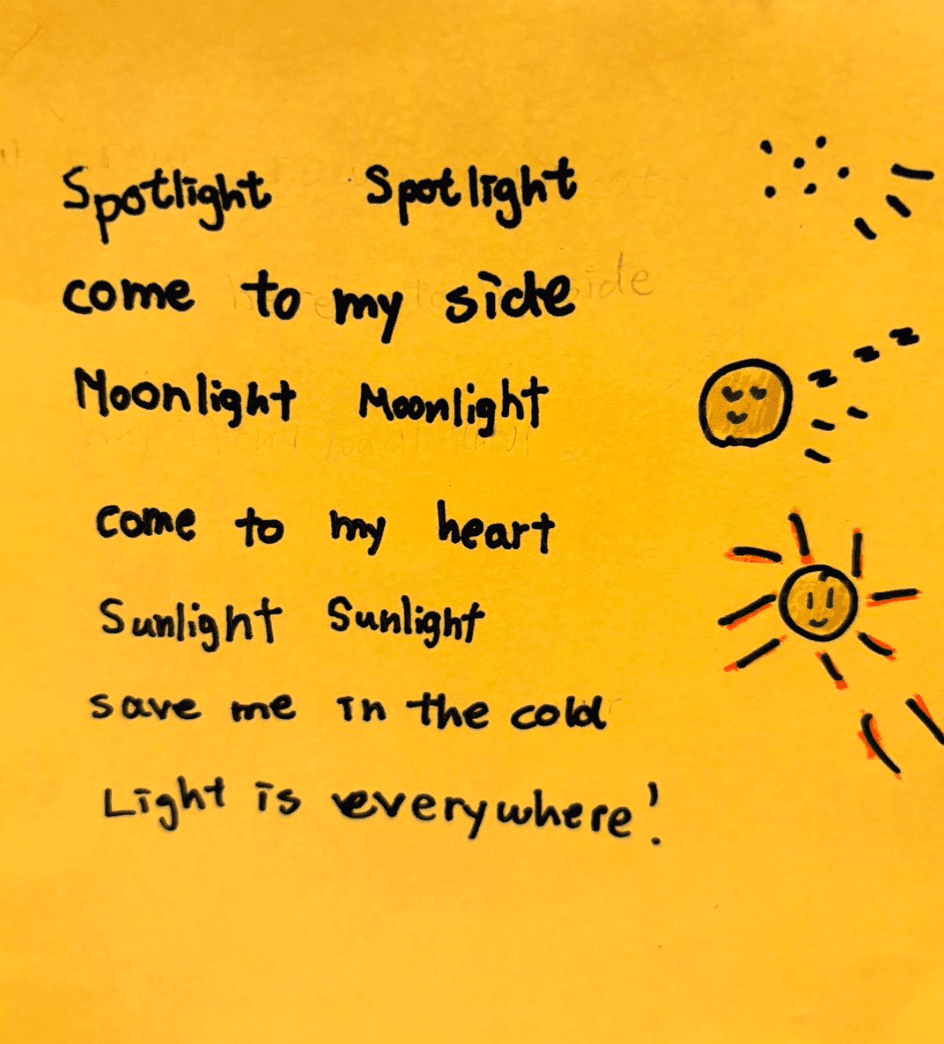 Spotlight Spotlight
come to my side
Moonlight Moonlight
come to my heart
Sunlight Sunlight
save me in the cold
Light is everywhere!